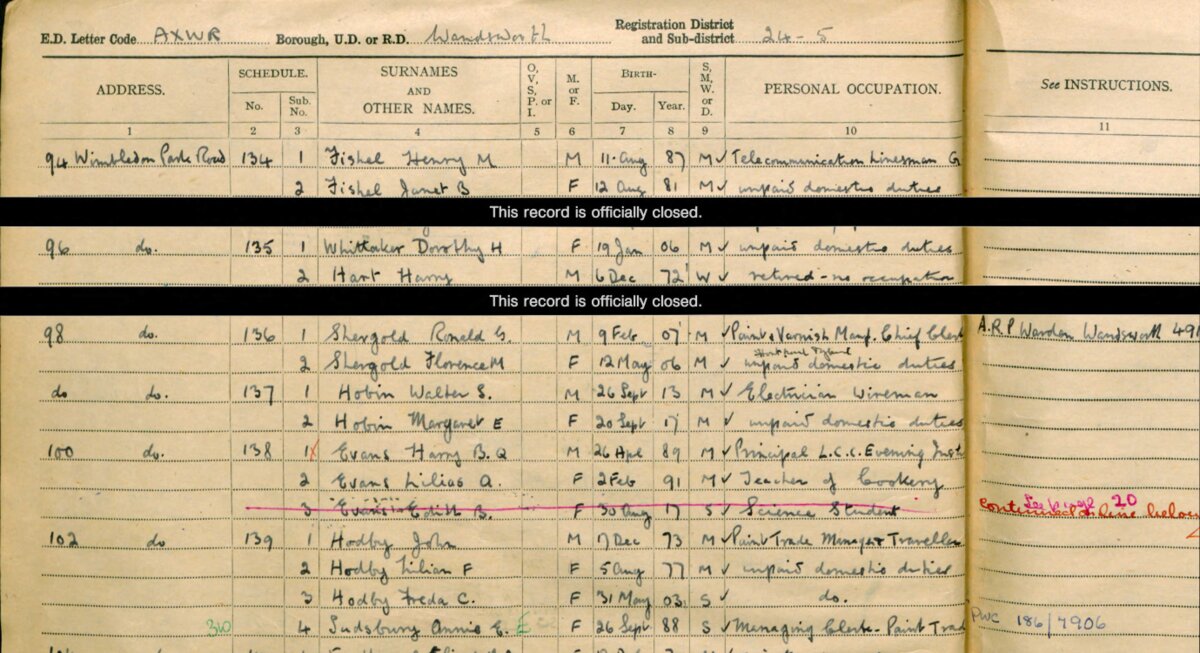 E.D. Letter Code AXWR Borough, U.D. or R.D. Wandsworth Registration District and Sub-district 24-5
ADDRESS. SCHEDULE. No. Sub. No. SURNAMES AND OTHER NAMES. O, V, S, P, or I. M. or F. BIRTH- Day. Year. S, M, W, or D. PERSONAL OCCUPATION. See INSTRUCTIONS.
1 2 3 4 5 6 7 8 9 10 11
94 Wimbledon Park Road 134 1 Fishel Henry M M 11 Aug 87 M ✓ Telecommunication Linesman G
2 Fishel Janet B F 12 Aug 81 M ✓ unpaid domestic duties
This record is officially closed.
96 do. 135 1 Whittaker Dorothy H F 19 Jan 06 M ✓ unpaid domestic duties
2 Hart Harry M 6 Dec 72 W ✓ retired - no occupation
This record is officially closed.
98 do. 136 1 Shergold Ronald G. M 9 Feb 07 M ✓ Paint & Varnish Manf. Chief Clerk A.R.P Warden Wandsworth 491
2 Shergold Florence M F 12 May 06 M ✓ unpaid domestic duties
do do. 137 1 Hobin Walter S. M 26 Sept 13 M ✓ Electrician Wireman
2 Hobin Margaret E F 20 Sept 17 M ✓ unpaid domestic duties
100 do. 138 1 Evans Harry B. Q M 26 Apl 89 M ✓ Principal L.C.C. Evening Inst
2 Evans Lilias A. F 2 Feb 91 M ✓ Teacher of Cookery
3 Evans Edith B. F 30 Aug 17 S ✓ Science Student See page 20
continued line below
102 do 139 1 Hodby John M 17 Dec 73 M ✓ Paint Trade Manager & Traveller
2 Hodby Lilian F F 5 Aug 77 M ✓ unpaid domestic duties
3 Hodby Freda C. F 31 May 03 S ✓ do.
310 4 Sudsbury Annie E. E F 26 Sept 88 S ✓ Managing Clerk - Paint Trad PWC 186/7906